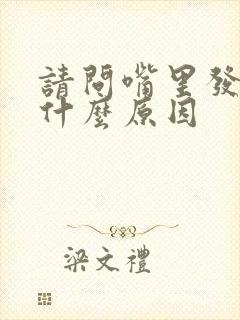 請問嘴里發
什麼原因
梁文禮